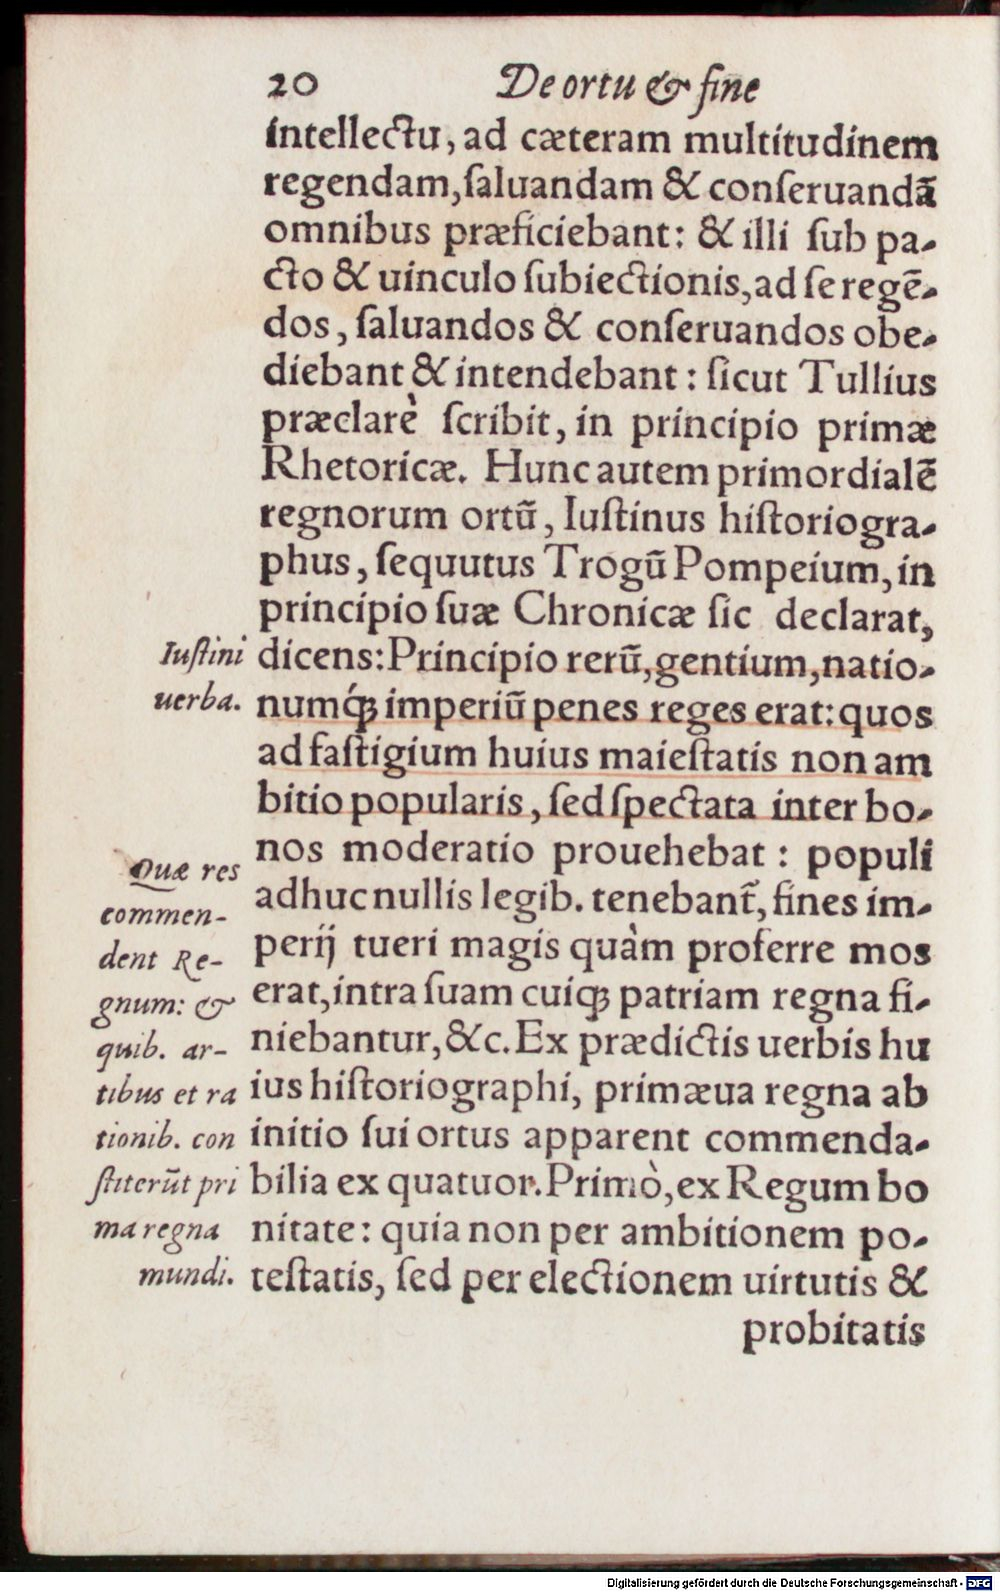 20 De ortu & fine
intellectu, ad cæteram multitudinem
regendam, ſaluandam & conſeruandã
omnibus præficiebant: & illi ſub pa-
cto & uinculo ſubiectionis, ad ſe regẽ-
dos, ſaluandos & conſeruandos obe-
diebant & intendebant: ſicut Tullius
præclarè ſcribit, in principio primæ
Rhetoricæ. Hunc autem primordialẽ
regnorum ortũ, Iuſtinus hiſtoriogra-
phus, ſequutus Trogũ Pompeium, in
principio ſuæ Chronicæ ſic declarat,
dicens: Principio rerũ, gentium, natio-
numq́ꝫ imperiũ penes reges erat: quos
ad faſtigium huius maieſtatis non am
bitio popularis, ſed ſpectata inter bo-
nos moderatio prouehebat: populi
adhuc nullis legib. tenebant᷑, fines im-
perij tueri magis quàm proferre mos
erat, intra ſuam cuiqꝫ patriam regna fi-
niebantur, &c. Ex prædictis uerbis hu
ius hiſtoriographi, primæua regna ab
initio ſui ortus apparent commenda-
bilia ex quatuor. Primò, ex Regum bo
nitate: quia non per ambitionem po-
teſtatis, ſed per electionem uirtutis &
probitatis
Iuſtini
uerba.
Quæ res
commen-
dent Re-
gnum: &
quib. ar-
tibus et ra
tionib. con
ſtiterũt pri
ma regna
mundi.
Digitalisierung gefördert durch die Deutsche Forschungsgemeinschaft - DFG